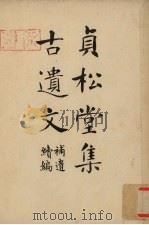 貞松堂集
古遺文
補遺
續編